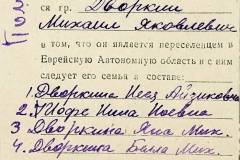 ся гр. Дворкин
Михаил Яковлевич
в том, что он является переселенцем в
Еврейскую Автономную область и с ним
следует его семья в составе:
1. Дворкина Песя Айзиковна
2. Иофе Нина Иосевна
3 Дворкина Яна Мих.
4. Дворкина Бэлла Мих.